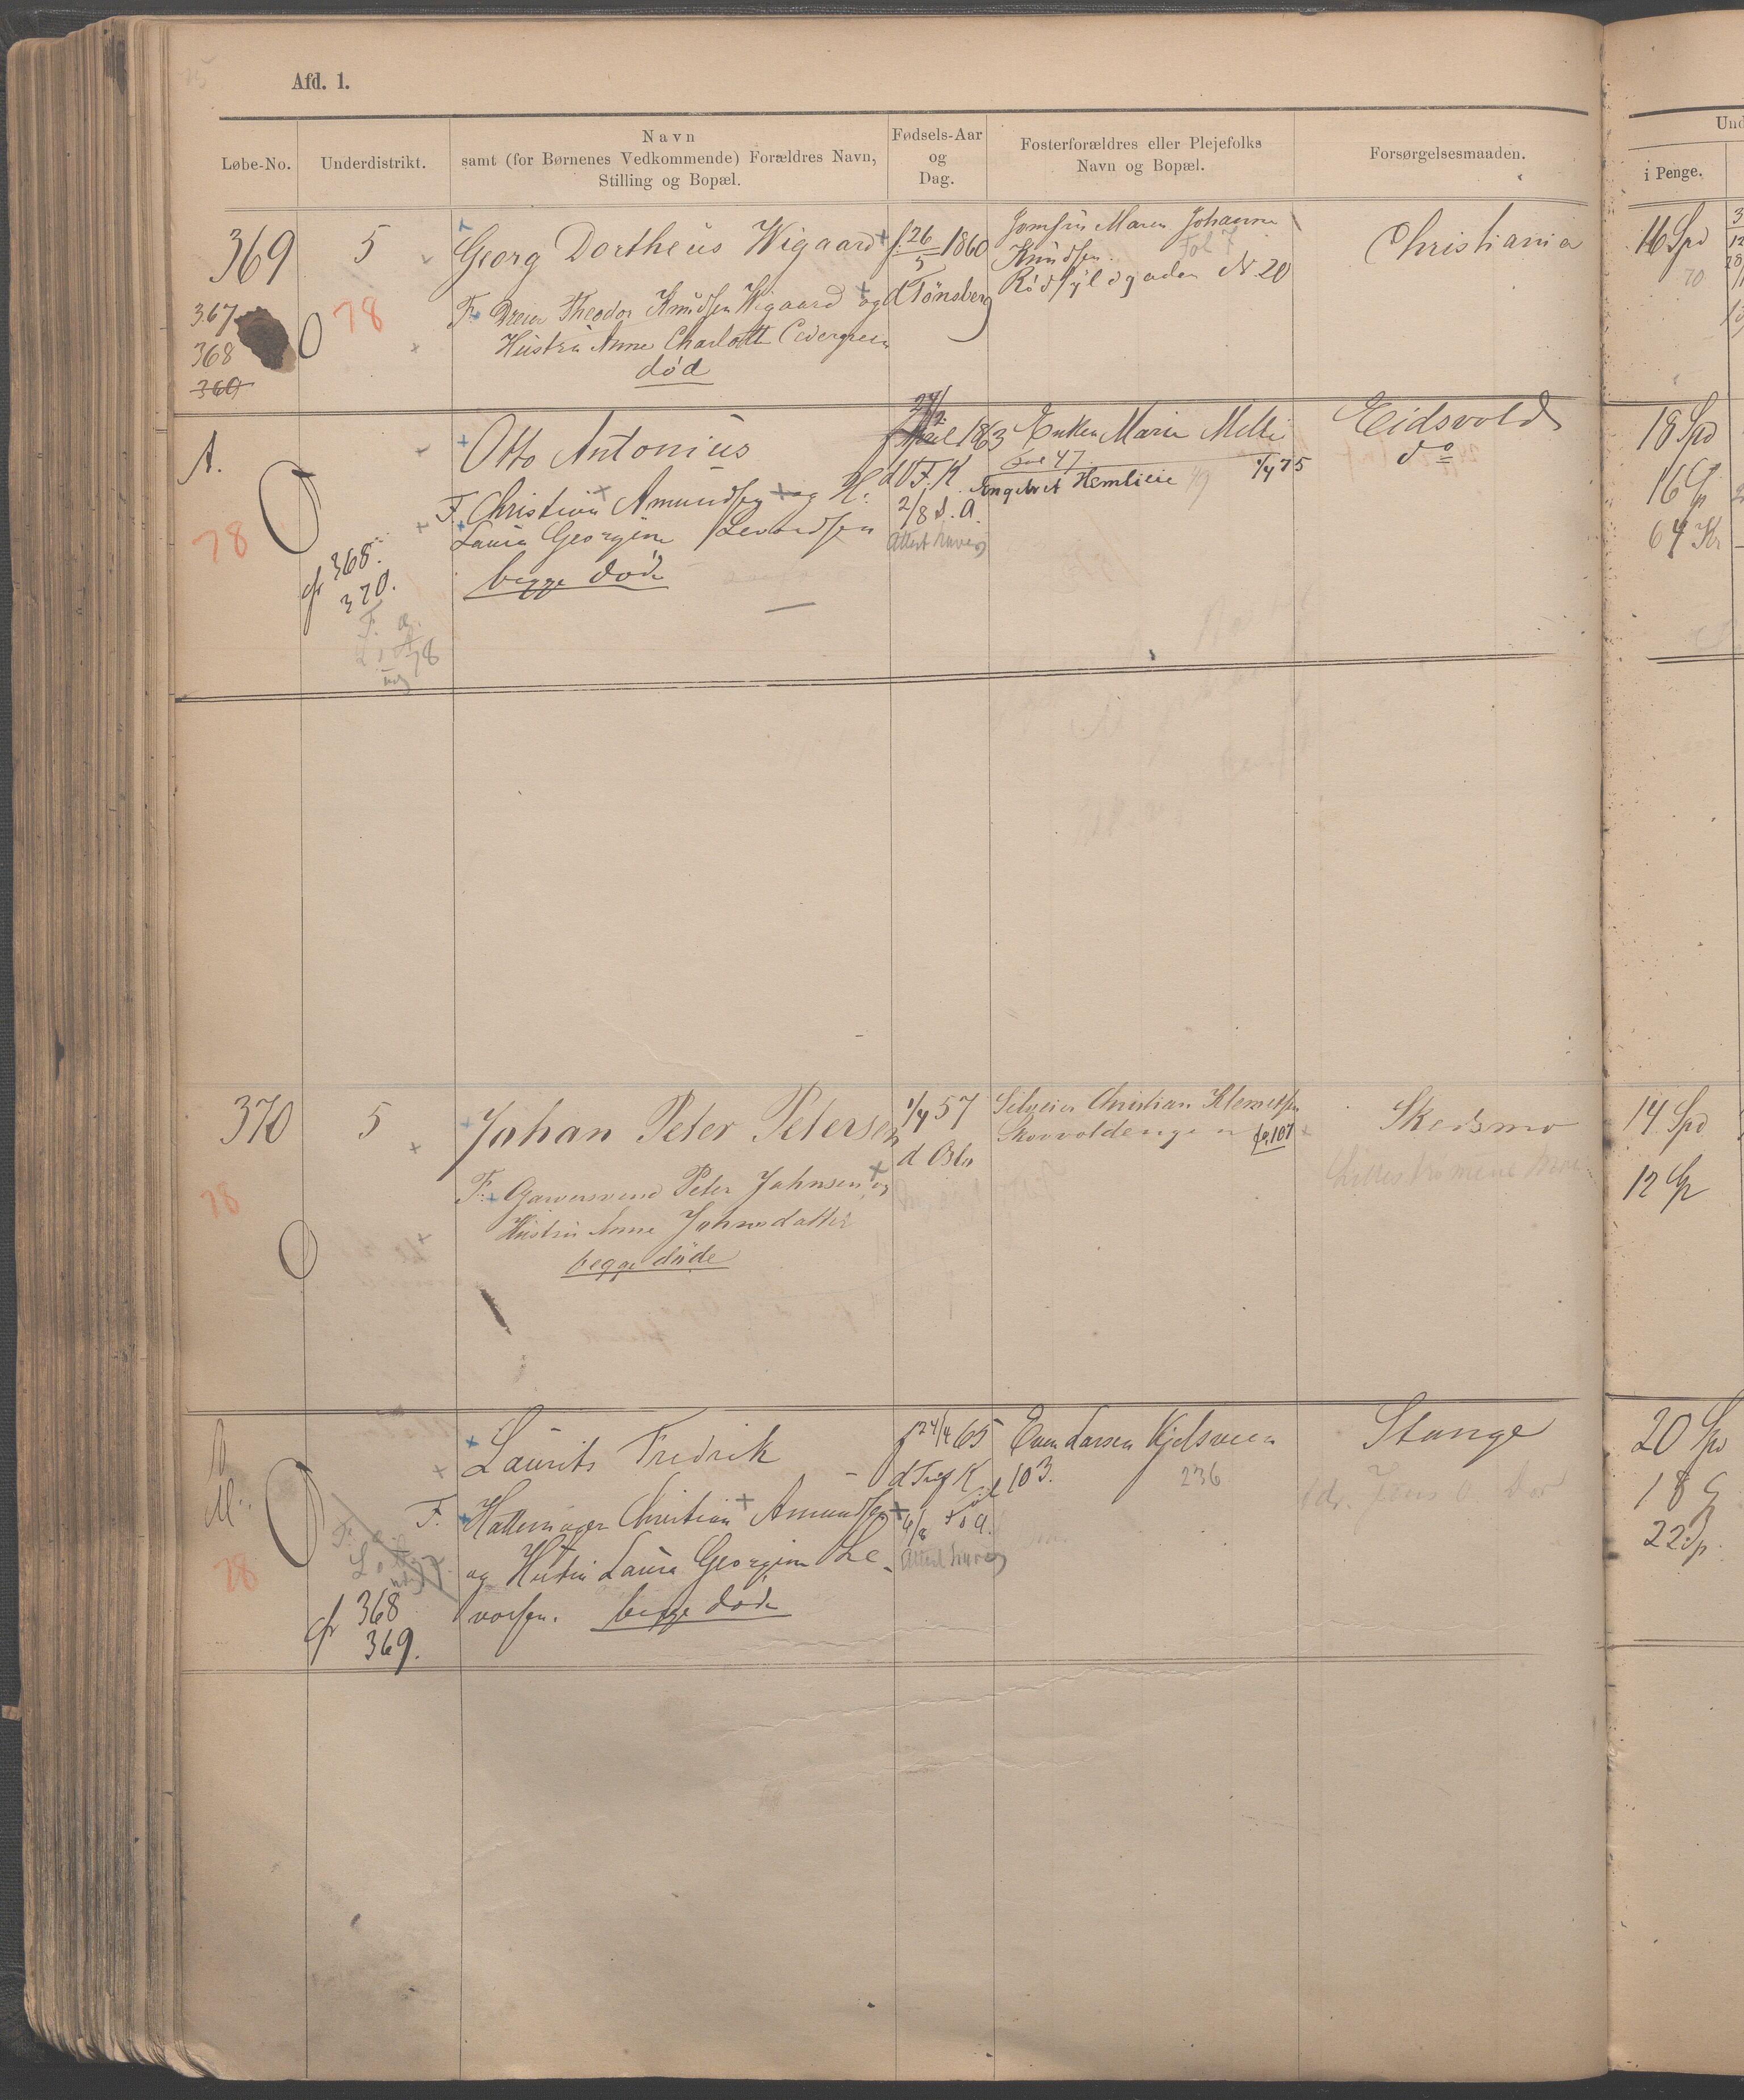 Afd. 1.
Løbe-No.
Underdistrikt.
Navn
samt (for Børnenes Vedkommende) Forældres Navn,
Stilling og Bopæl.
Fødsels-Aar
og
Dag.
Fosterforældres eller Plejefolks
Navn og Bopæl.
Forsørgelsesmaaden.
Und
i Penge.
369
367
368
369
5
78
Georg Dortheus Wigaard
F. Dreier Theodor Knudsen Wigaard og
Hustru Anne Charlotte Cedergreen
død
f. 26/5 1860
d Tönsberg
Jomfru Maren Johanne
Knudsen. Fol 7
Rödfyldgaden N. 20
Christiania
16 Spd
70
A.
78
cfr 368.
370.
F. a.
78
Otto Antonius
F. Christian Amundsen og H.
Laura Georgine Levordsen
begge døde
27/2
f April 1863
d V. F. K.
2/8 s. A.
Attest haves
Enken Marie Melli
Fol 47.
Engebret Hemlieie 1/4 75
Eidsvold
do
18 Spd
16 Sp
64 Kr
370
5
78
Johan Peter Petersen
F. Garversvend Peter Johnsen og
Hustru Anne Johnsdatter
begge døde
1/4 57
d Oslo
Christian Klemetsen
Skovvoldengen fo. 107
Skedsmo
Lillestrømens
14 Spd
12 Sp
78
cfr 368
369.
Laurits Fredrik
F. Hattemager Christian Amundsen
og Hustru Laura Georgine Le-
vorsen. begge døde
f 24/4 65
d Tref K
6/8 s. A.
Attest haves
Even Larsen Kjelsveen
Fol 103.
236
Stange
20 Spd
18 S
22 Sp.